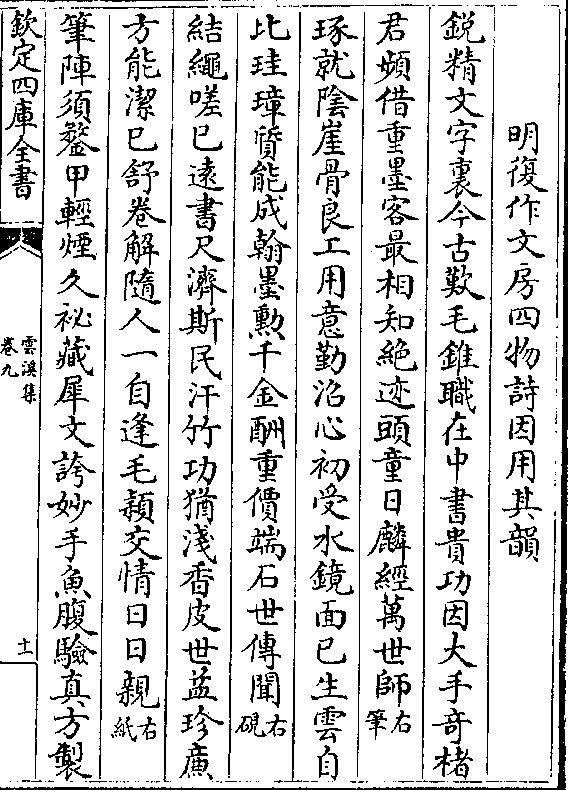 明復作文房四物詩因用其韻
鋭精文字裏今古歎毛錐職在中書貴功因大手竒楮
君頻借重墨客最相知絶迹頭童日麟經萬世師右筆
琢就陰崖骨良工用意勤泓心初受水鏡面已生雲自
比珪璋質能成翰墨勲千金酬重價端石世傳聞右硯
結繩嗟已逺書尺濟斯民汗竹功猶淺香皮世益珍廉
方能潔已舒卷解隨人一自逢毛頴交情日日親右紙
筆陣須鏊甲輕煙久祕藏犀文誇妙手魚腹驗真方製
欽定四庫全書
雲溪集
卷九
十一